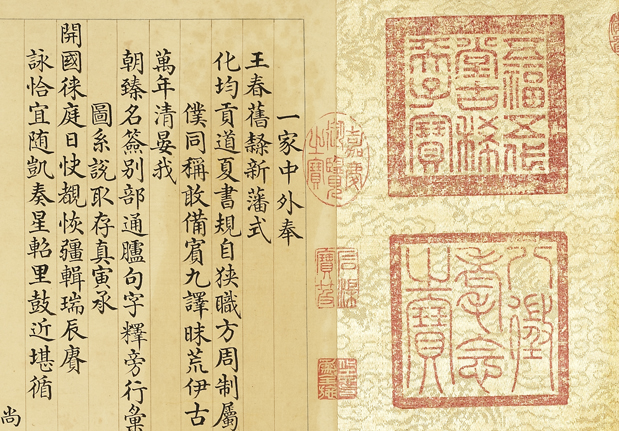 五福五代堂古稀天子寶
八徵耄念之寶
嘉慶御覽之寶
石渠寶笈
一家中外奉
王春舊隸新藩式
化均貢道夏書規自狹職方周制屬
僕同稱敢備賓九譯昧荒伊古
萬年清晏我
朝臻名簽别部通臚句字釋旁行彙
圖系說取存真寅承
開國徠庭日快覩恢疆輯瑞辰賡
詠恰宜随凱奏星軺里鼓近堪循
尚